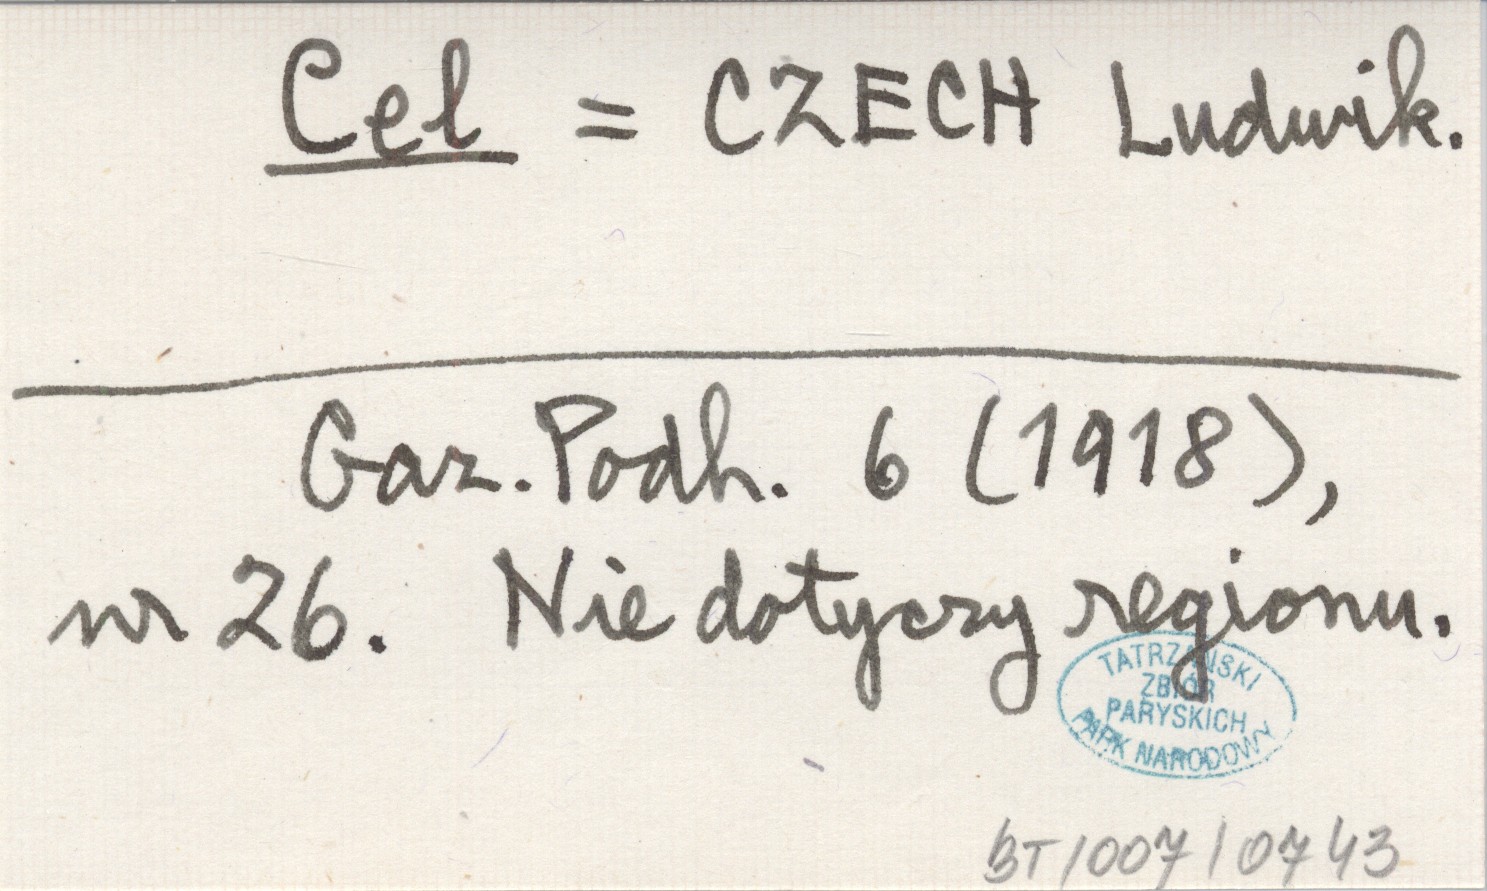 Cel = CZECH Ludwik.
Gaz. Podh. 6 (1918),
nr 26. Nie dotyczy regionu.
TATRZAŃSKI
ZBIÓR
PARYSKICH
PARK NARODOWY
BT/007/0743